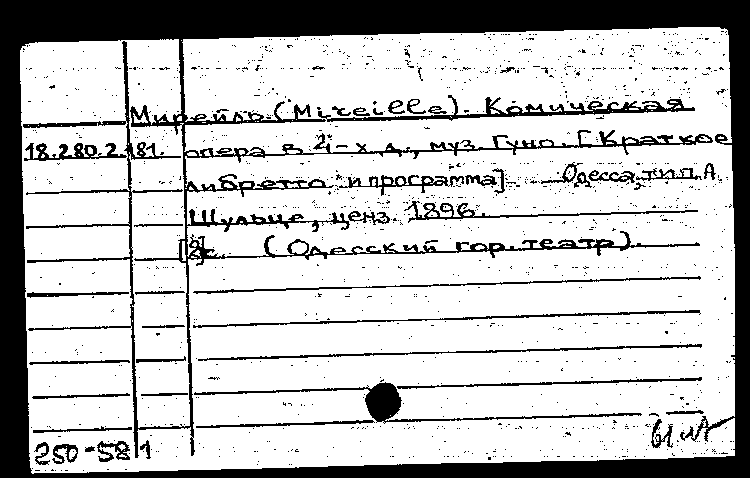 Мирейль. (Mireille). Комическая
18.280.2.181. опера в 2-х д., муз. Гуно. [Краткое
либретто и программа] Одесса, тип. А.
Шульце, ценз. 1896.
[2]с. (Одесский гор. театр).
250-58 1